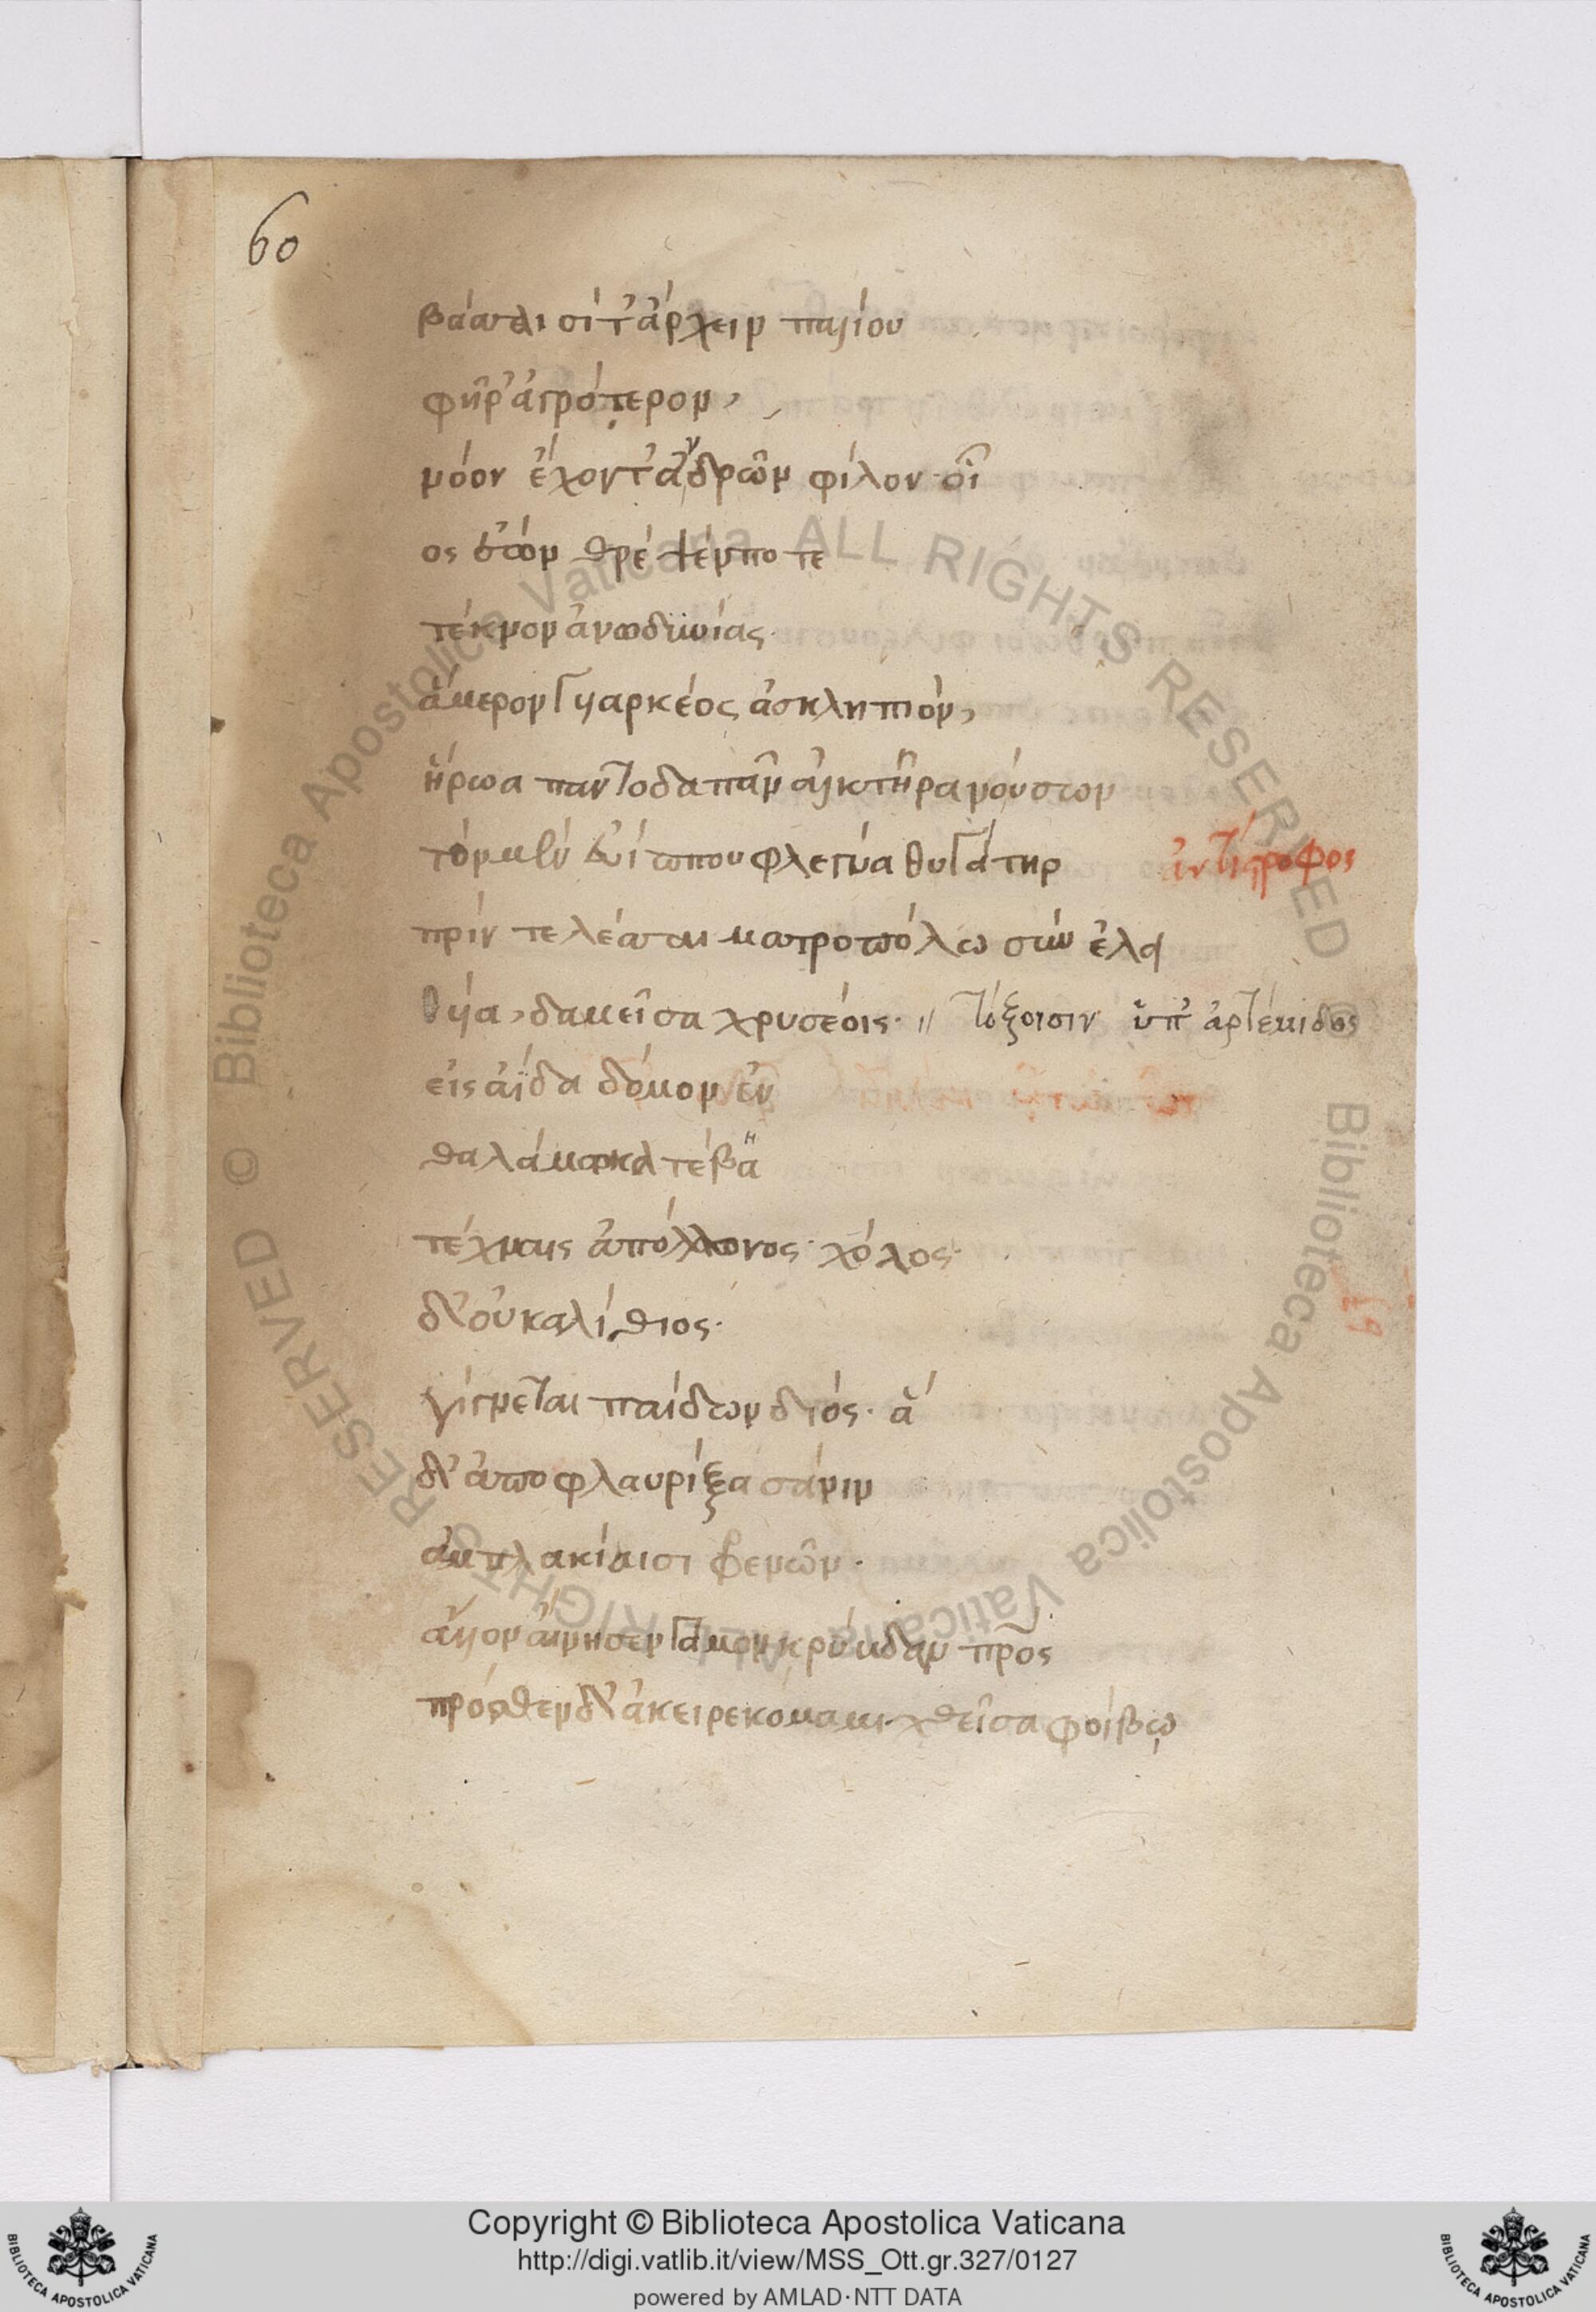 60
βάσσαισί τ' ἄρχειν παλίου
φῆρ' ἀγρότερον,
νόον ἔχοντ' ἀνδρῶν φίλον· οἷ
ος ἐὼν θρέψεν ποτε
τέκνον ἀνωδυνίας·
ἅμερον γυαρκέος ἀσκληπιὸν,
ἥρωα παντοδαπᾶν ἀλκτῆρα νούσων
τὸν μὲν εὐίππου φλεγύα θυγάτηρ
ἀντίστροφος
πρὶν τελέσσαι ματροπόλω σὺν ἐλει
θυία, δαμεῖσα χρυσέοις· // τόξοισιν ὑπ' ἀρτέμιδος
εἰς ἀΐδα δόμον ἐν
θαλάμω κατέβα
η
τέχναις ἀπόλλωνος· χόλος·
δ' οὐκ ἀλίθιος·
γίγνεται παίδων διός· ἁ
δ' ἀποφλαυρίξασά νιν
ἀμπλακίαισι φενῶν·
ἄλλον αἴνησεν γάμον κρύβδαν πρὸς
πρόσθεν δ' ἀκειρεκόμα μιχθεῖσα φοίβῳ
Copyright © Biblioteca Apostolica Vaticana
http://digi.vatlib.it/view/MSS_Ott.gr.327/0127
powered by AMLAD·NTT DATA
BIBLIOTECA APOSTOLICA VATICANA
BIBLIOTECA APOSTOLICA VATICANA
© Biblioteca Apostolica Vaticana ALL RIGHTS RESERVED
© Biblioteca Apostolica Vaticana ALL RIGHTS RESERVED